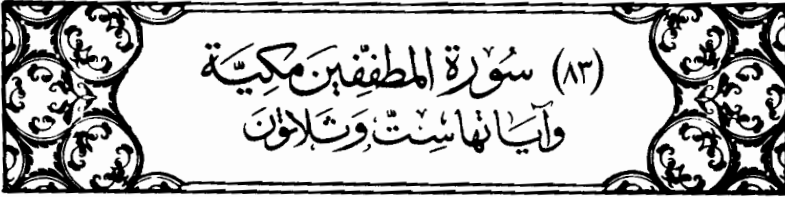 (٨٣) سُورَة المطفِّفِين مَكِيَّة
وَآيَاتهَا سِتّ وَثَلاثوُنَ